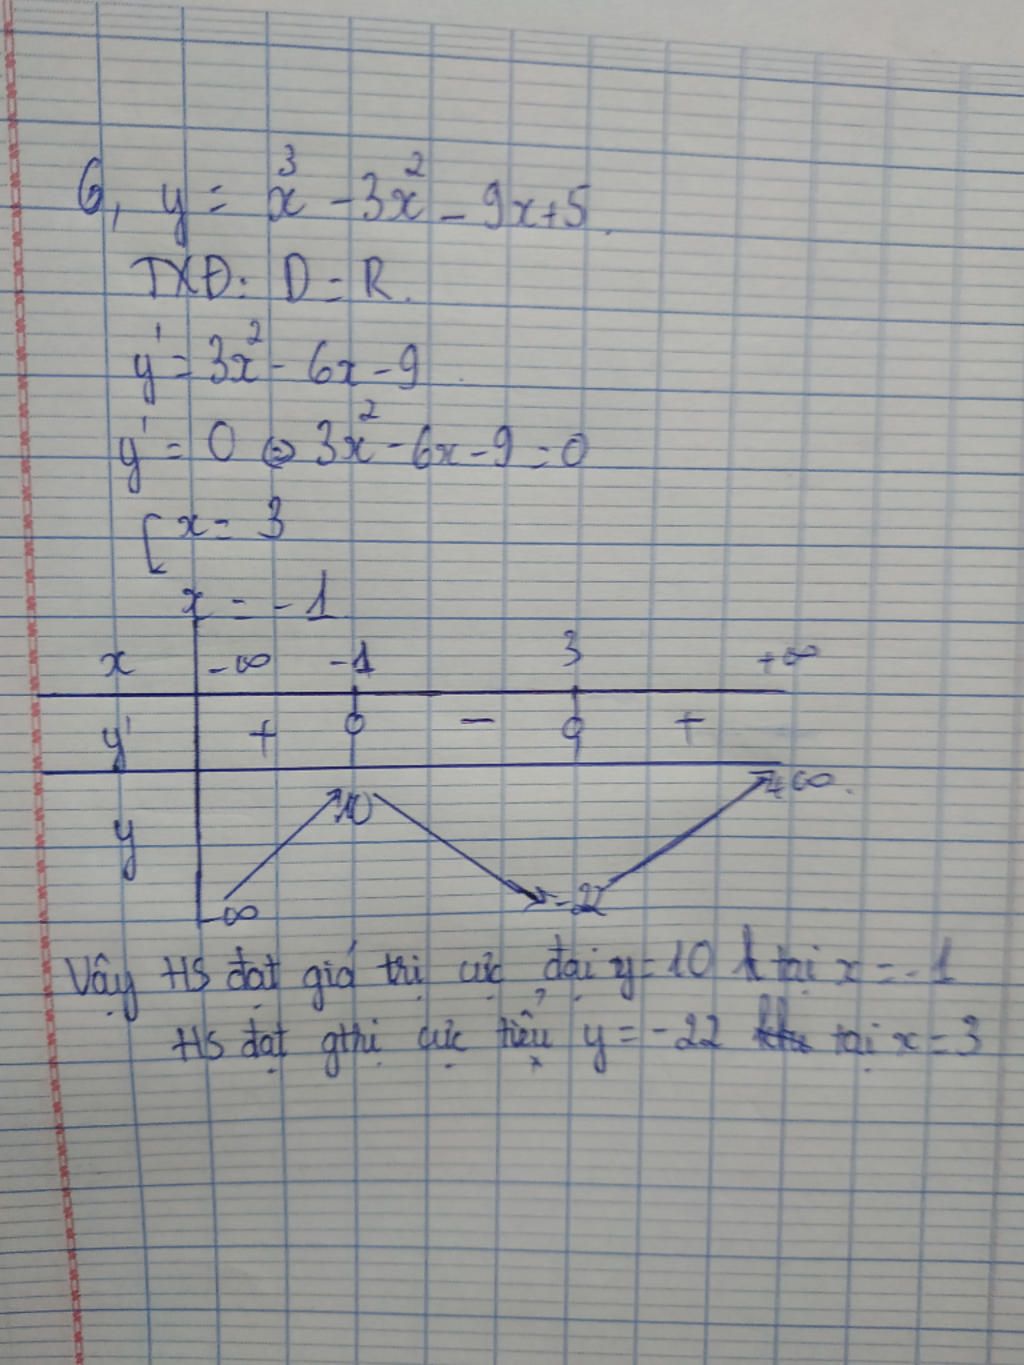 6, y = x³ - 3x² - 9x + 5.
TXĐ: D = R.
y' = 3x² - 6x - 9.
y' = 0 ⇔ 3x² - 6x - 9 = 0
[ x = 3
x = -1
x -∞ -1 3 +∞
y' + 0 - 0 +
10 +∞.
y
-∞ -22
Vậy HS đạt giá trị cực đại y = 10 tại x = -1
HS đạt gthị cực tiểu y = -22 tại x = 3